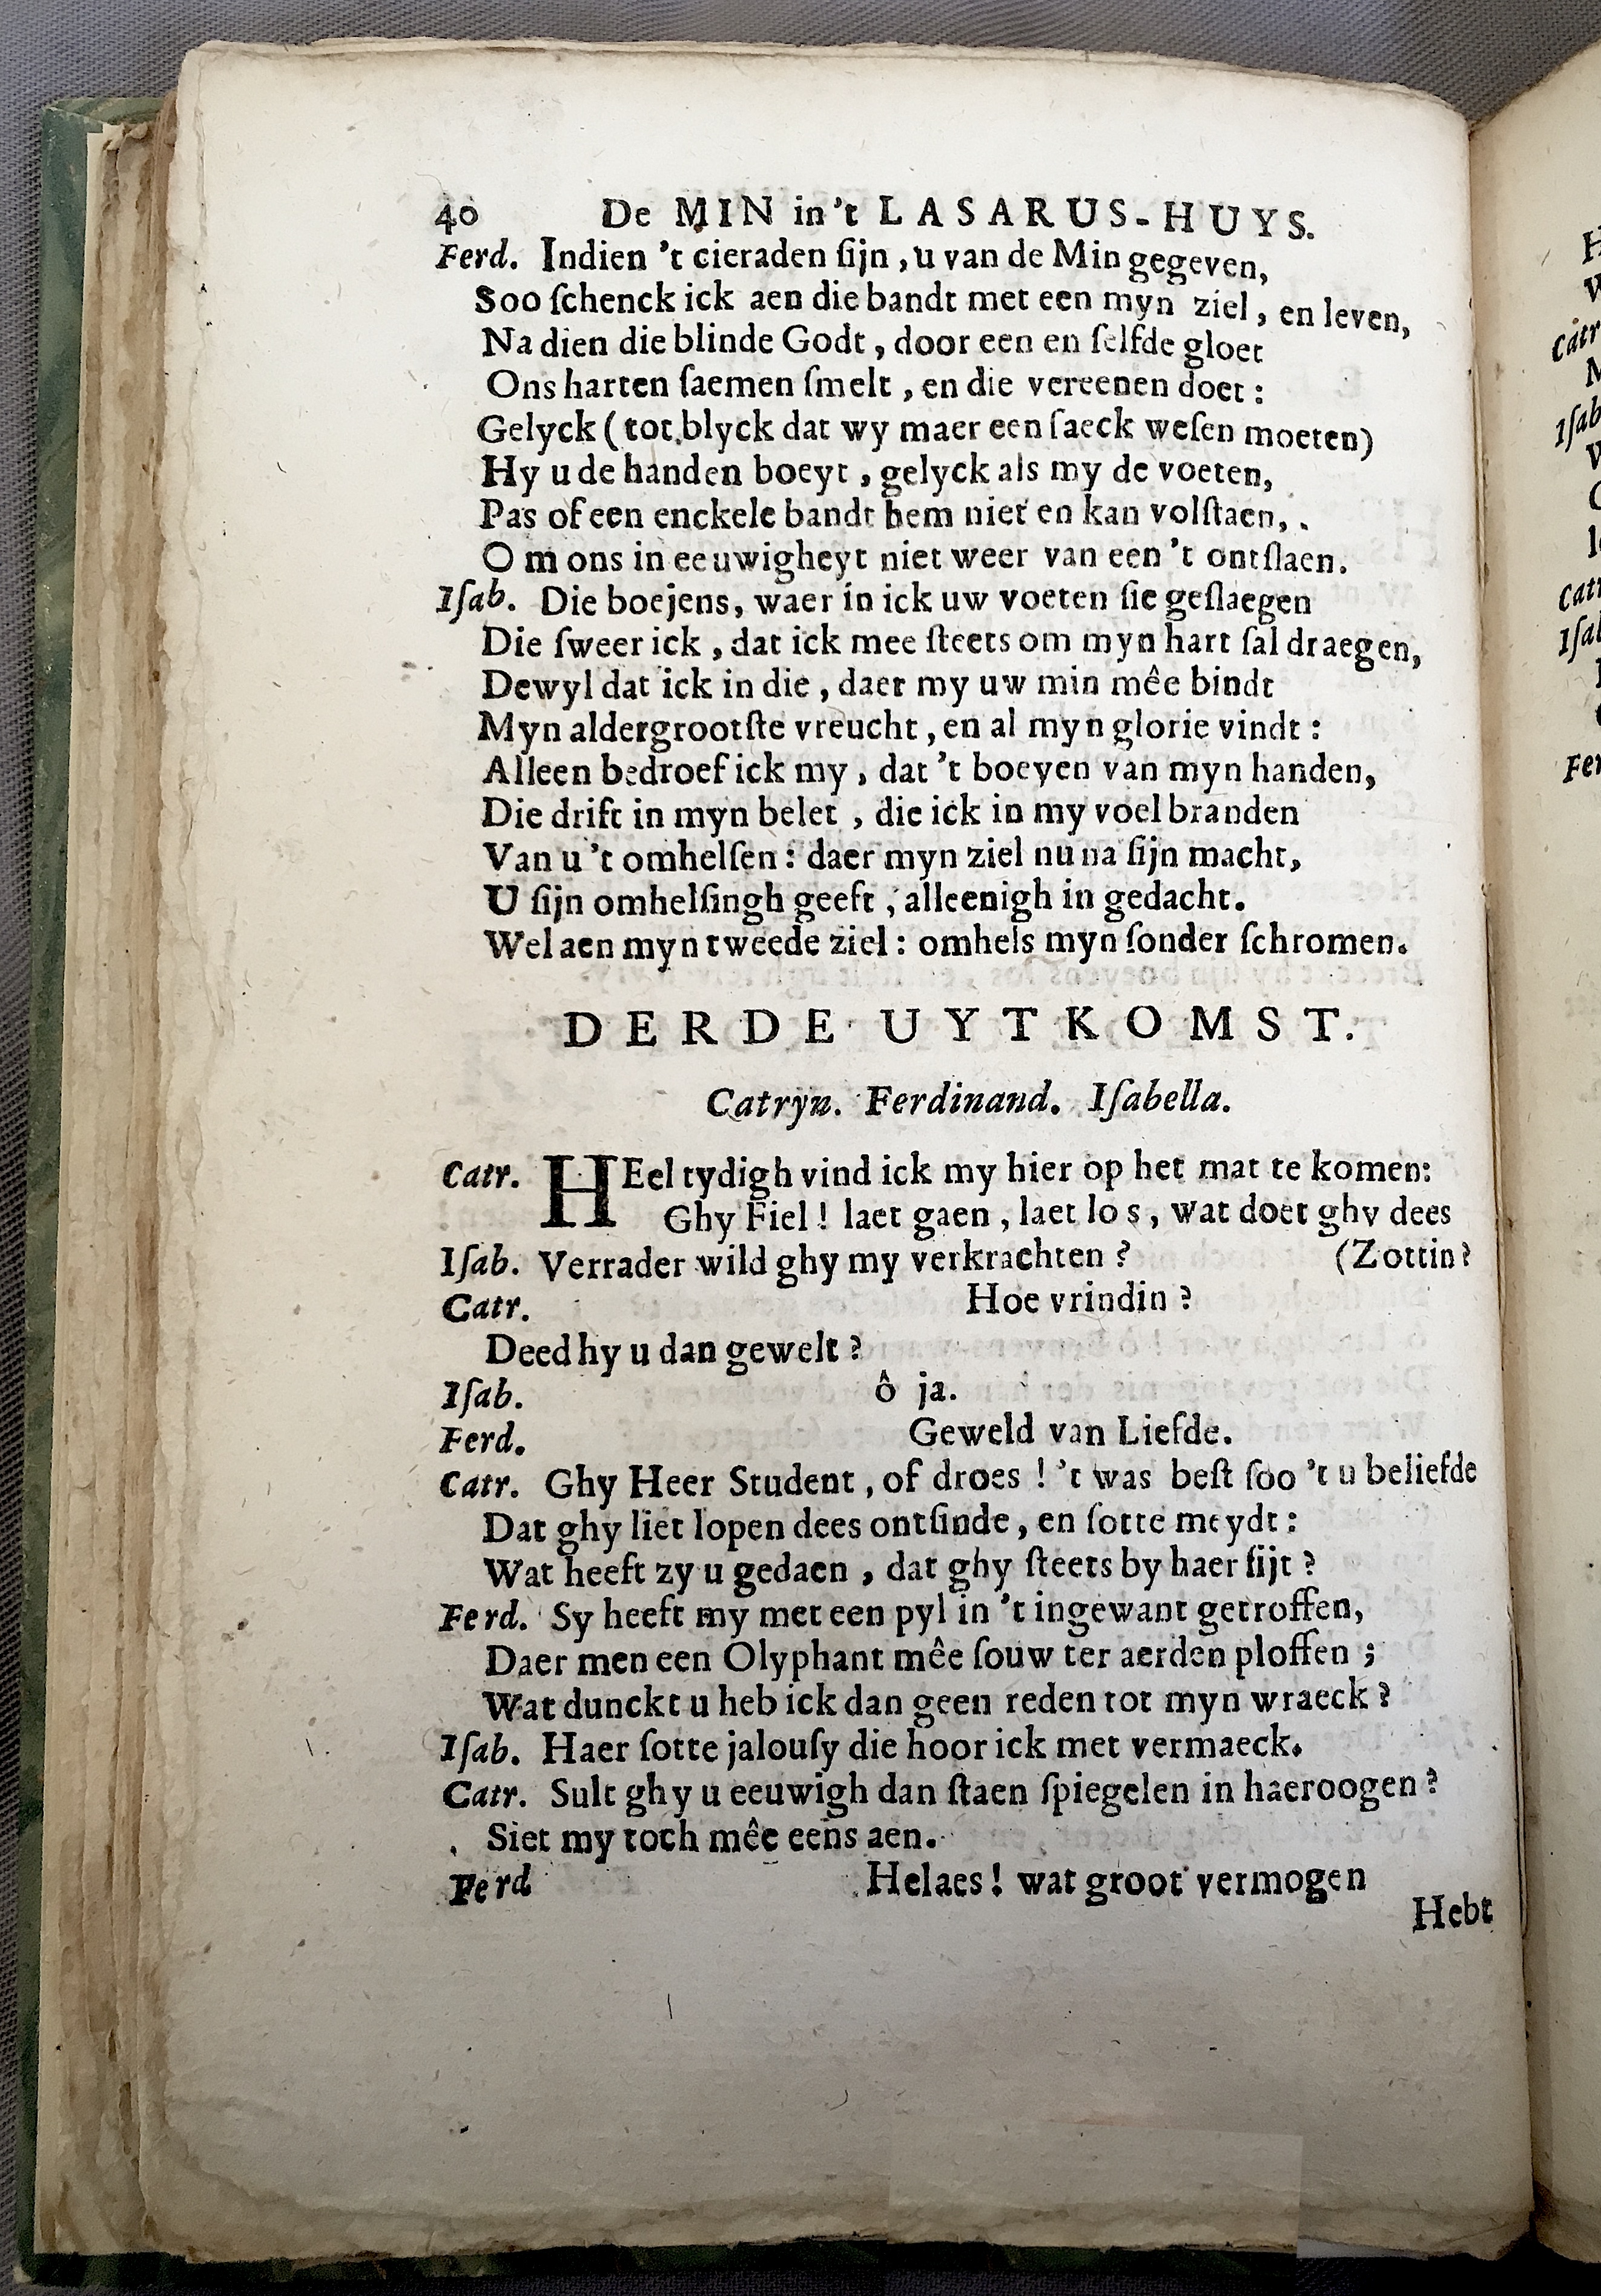 40 De MIN in 't LASARUS-HUYS.
Ferd. Indien 't cieraden ſijn, u van de Min gegeven,
Soo ſchenck ick aen die bandt met een myn ziel, en leven,
Na dien die blinde Godt, door een en ſelfde gloet
Ons harten ſaemen ſmelt, en die vereenen doet:
Gelyck (tot blyck dat wy maer een ſaeck weſen moeten)
Hy u de handen boeyt, gelyck als my de voeten,
Pas of een enckele bandt hem niet en kan volſtaen,.
Om ons in eeuwigheyt niet weer van een 't ontſlaen.
Iſab. Die boejens, waer in ick uw voeten ſie geſlaegen
Die ſweer ick, dat ick mee ſteets om myn hart ſal draegen,
Dewyl dat ick in die, daer my uw min mêe bindt
Myn aldergrootſte vreucht, en al myn glorie vindt:
Alleen bedroef ick my, dat 't boeyen van myn handen,
Die drift in myn belet, die ick in my voel branden
Van u 't omhelſen: daer myn ziel nu na ſijn macht,
U ſijn omhelſingh geeft, alleenigh in gedacht.
Wel aen myn tweede ziel: omhels myn ſonder ſchromen.
DERDE UYTKOMST.
Catryn. Ferdinand. Iſabella.
Catr. HEel tydigh vind ick my hier op het mat te komen:
Ghy Fiel! laet gaen, laet los, wat doet ghy dees
Iſab. Verrader wild ghy my verkrachten? (Zottin?
Catr. Hoe vrindin?
Deed hy u dan gewelt?
Iſab. ô ja.
Ferd. Geweld van Liefde.
Catr. Ghy Heer Student, of droes! 't was beſt ſoo 't u beliefde
Dat ghy liet lopen dees ontſinde, en ſotte meydt:
Wat heeft zy u gedaen, dat ghy ſteets by haer ſijt?
Ferd. Sy heeft my met een pyl in 't ingewant getroffen,
Daer men een Olyphant mêe ſouw ter aerden ploffen;
Wat dunckt u heb ick dan geen reden tot myn wraeck?
Iſab. Haer ſotte jalouſy die hoor ick met vermaeck.
Catr. Sult ghy u eeuwigh dan ſtaen ſpiegelen in haer oogen?
Siet my toch mêe eens aen.
Ferd Helaes! wat groot vermogen
Hebt